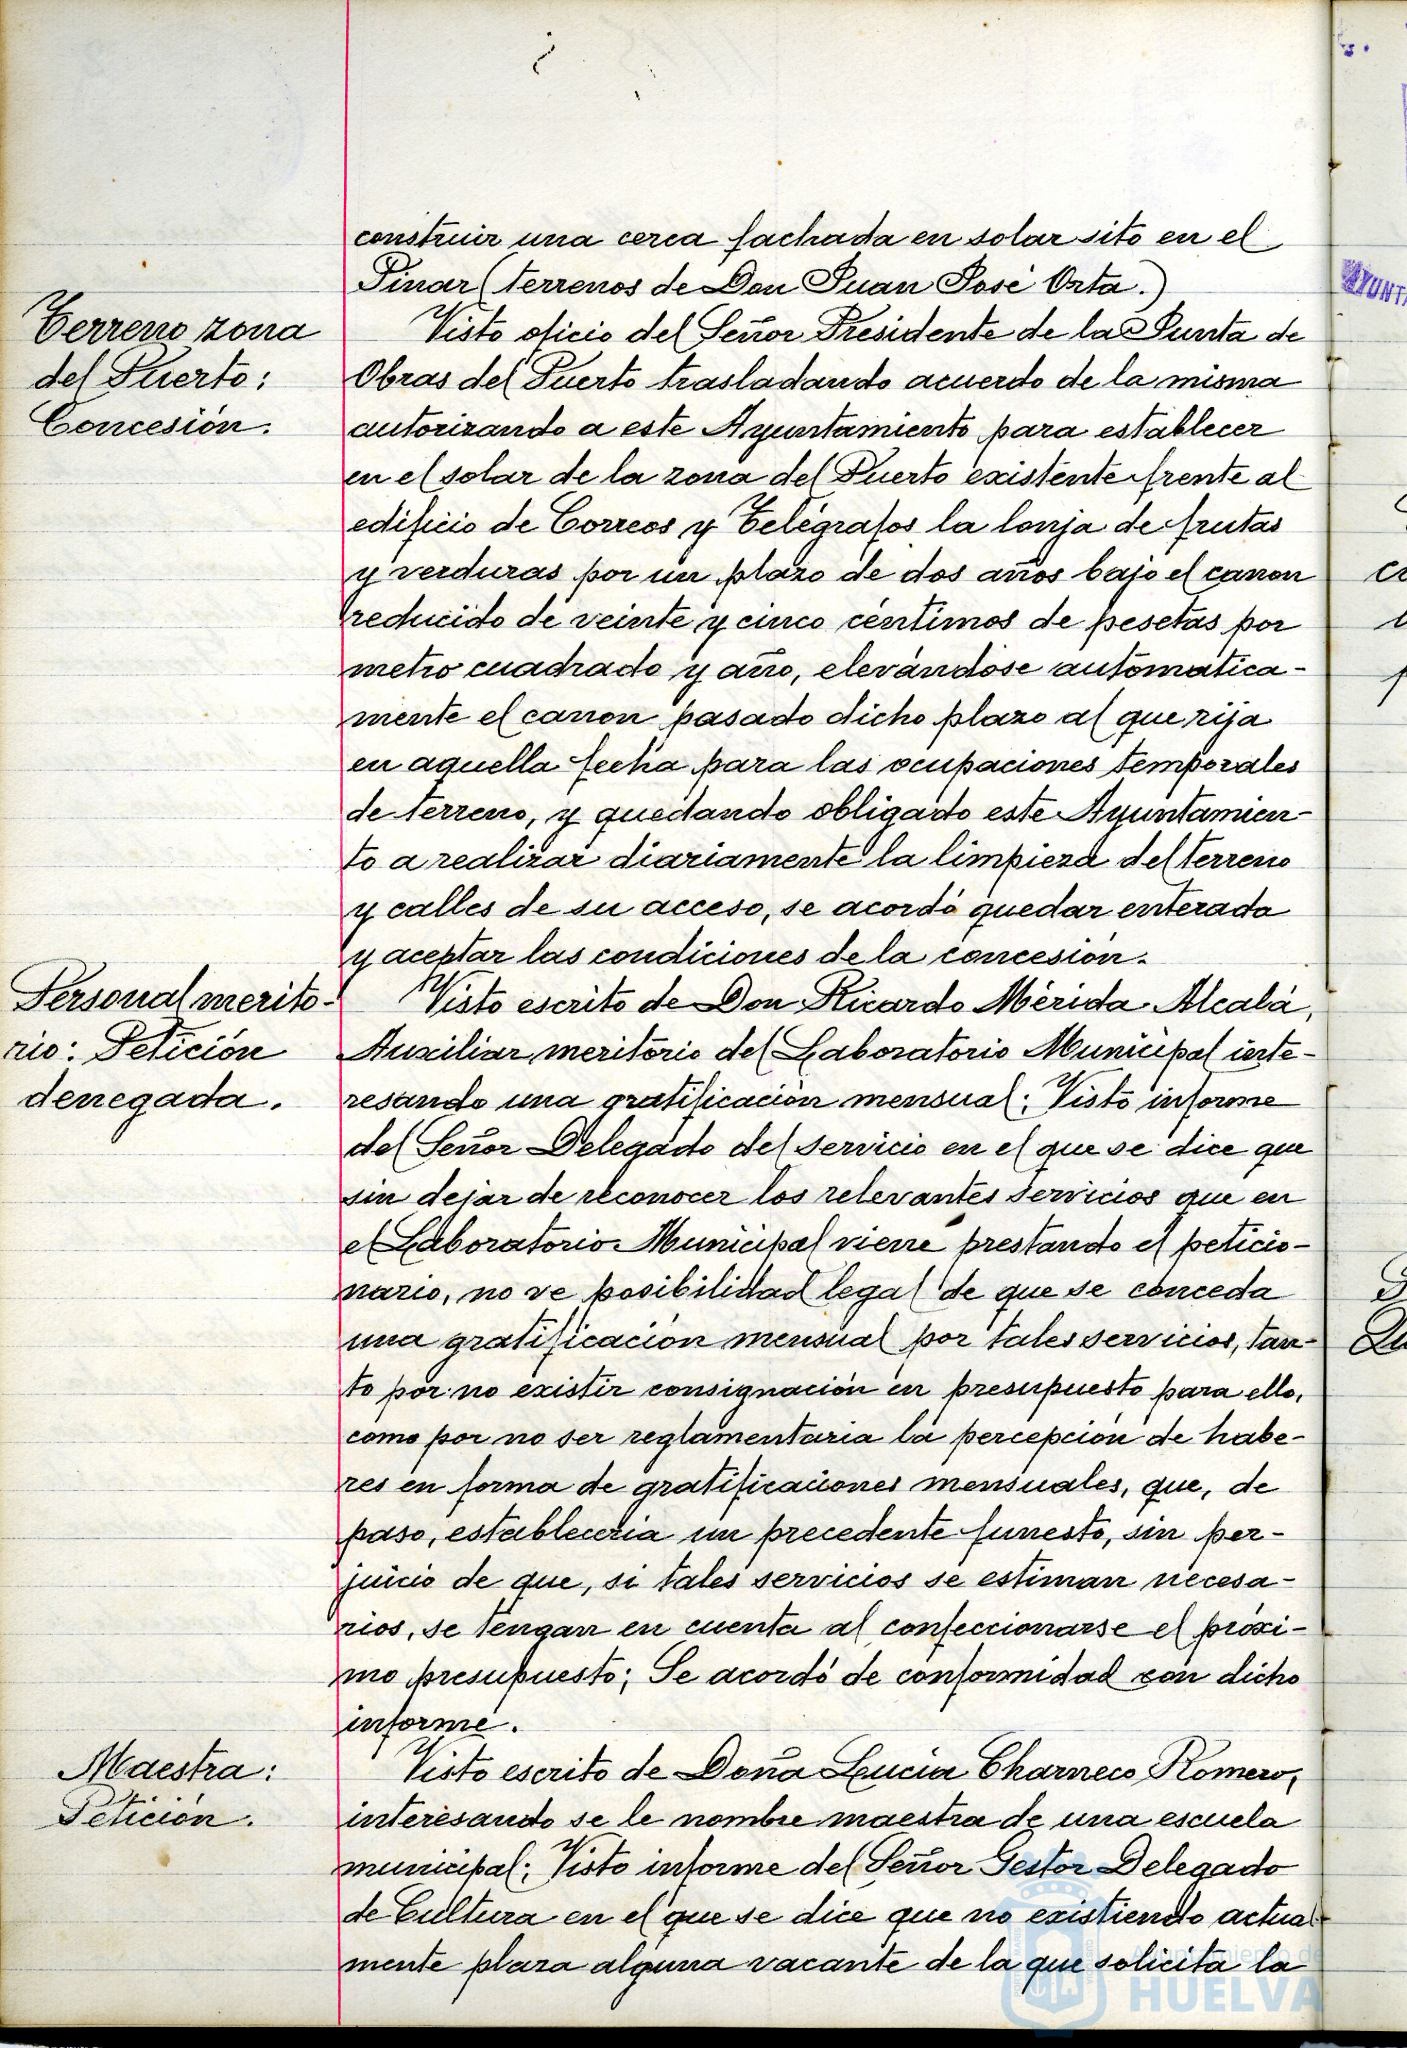 construir una cerca fachada en solar sito en el
Pinar (terrenos de Don Juan José Orta.)
Terreno zona
del Puerto:
Concesión.
Visto oficio del Señor Presidente de la Junta de
Obras del Puerto trasladando acuerdo de la misma
autorizando a este Ayuntamiento para establecer
en el solar de la zona del Puerto existente frente al
edificio de Correos y Telégrafos la lonja de frutas
y verduras por un plazo de dos años bajo el canon
reducido de veinte y cinco céntimos de pesetas por
metro cuadrado y año, elevándose automática-
mente el canon pasado dicho plazo al que rija
en aquella fecha para las ocupaciones temporales
de terreno, y quedando obligado este Ayuntamien-
to a realizar diariamente la limpieza del terreno
y calles de su acceso, se acordó quedar enterada
y aceptar las condiciones de la concesión.
Personal merito-
rio: Petición
denegada.
Visto escrito de Don Ricardo Mérida Alcalá,
Auxiliar meritorio del Laboratorio Municipal inte-
resando una gratificación mensual; Visto informe
del Señor Delegado del servicio en el que se dice que
sin dejar de reconocer los relevantes servicios que en
el Laboratorio Municipal viene prestando el peticio-
nario, no ve posibilidad legal de que se conceda
una gratificación mensual por tales servicios, tan-
to por no existir consignación en presupuesto para ello,
como por no ser reglamentaria la percepción de habe-
res en forma de gratificaciones mensuales, que, de
paso, establecería un precedente funesto, sin per-
juicio de que, si tales servicios se estiman necesa-
rios, se tengan en cuenta al confeccionarse el próxi-
mo presupuesto; Se acordó de conformidad con dicho
informe.
Maestra:
Petición.
Visto escrito de Doña Lucia Charneco Romero,
interesando se le nombre maestra de una escuela
municipal; Visto informe del Señor Gestor Delegado
de Cultura en el que se dice que no existiendo actual-
mente plaza alguna vacante de la que solicita la
Ayuntamiento de
HUELVA